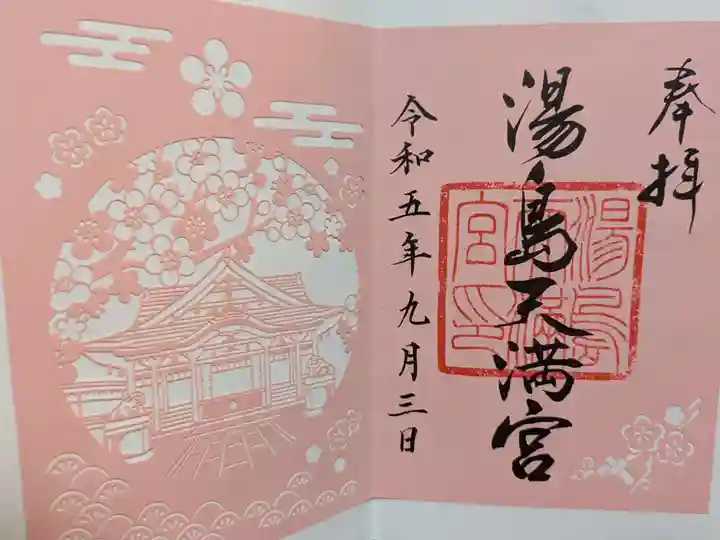 奉拝
湯島天満宮
湯島天満宮印
令和五年九月三日